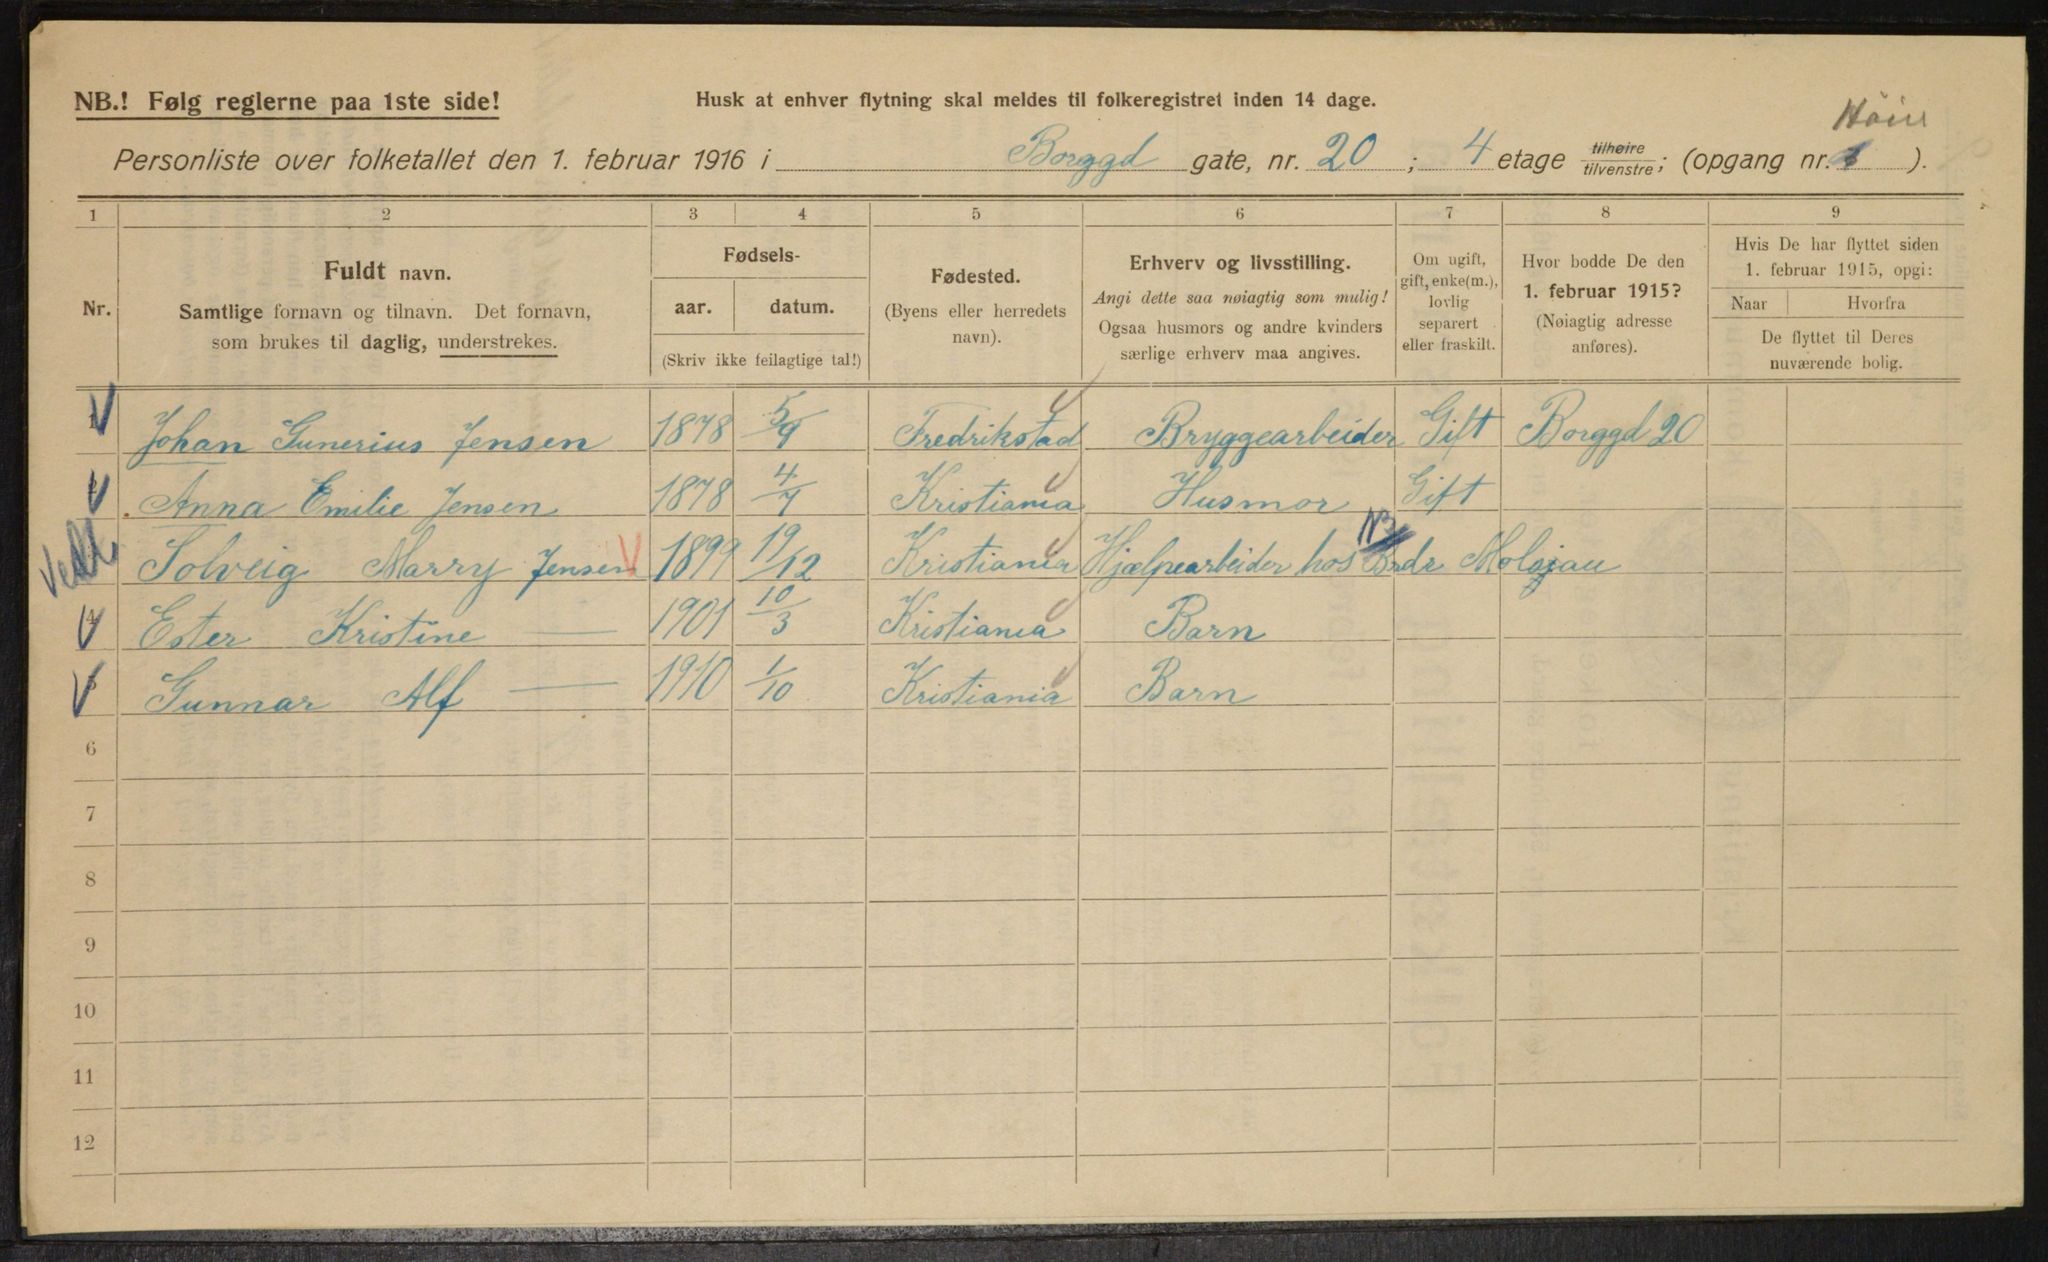 NB.! Følg reglerne paa 1ste side!
Husk at enhver flytning skal meldes til folkeregistret inden 14 dage.
Personliste over folketallet den 1. februar 1916 i Borggd gate, nr. 20 ; 4 etage tilhøire/tilvenstre; (opgang nr. ).
1 2 3 4 5 6 7 8 9
Nr.
Fuldt navn.
Samtlige fornavn og tilnavn. Det fornavn,
som brukes til daglig, understrekes.
Fødsels-
aar. datum.
(Skriv ikke feilagtige tal!)
Fødested.
(Byens eller herredets
navn).
Erhverv og livsstilling.
Angi dette saa nøiagtig som mulig!
Ogsaa husmors og andre kvinders
særlige erhverv maa angives.
Om ugift,
gift, enke(m.),
lovlig
separert
eller fraskilt.
Hvor bodde De den
1. februar 1915?
(Nøiagtig adresse
anføres).
Hvis De har flyttet siden
1. februar 1915, opgi:
Naar Hvorfra
De flyttet til Deres
nuværende bolig.
Johan Gunerius Jensen 1878 5/9 Fredrikstad Bryggearbeider Gift Borggd 20
Anna Emilie Jensen 1878 4/7 Kristiania Husmor Gift
Solveig Marry Jensen 1899 19/12 Kristiania Hjælpearbeider hos Brdr
4 Ester Kristine — 1901 10/3 Kristiania Barn
5 Gunnar Alf — 1910 1/10 Kristiania Barn
6
7
8
9
10
11
12